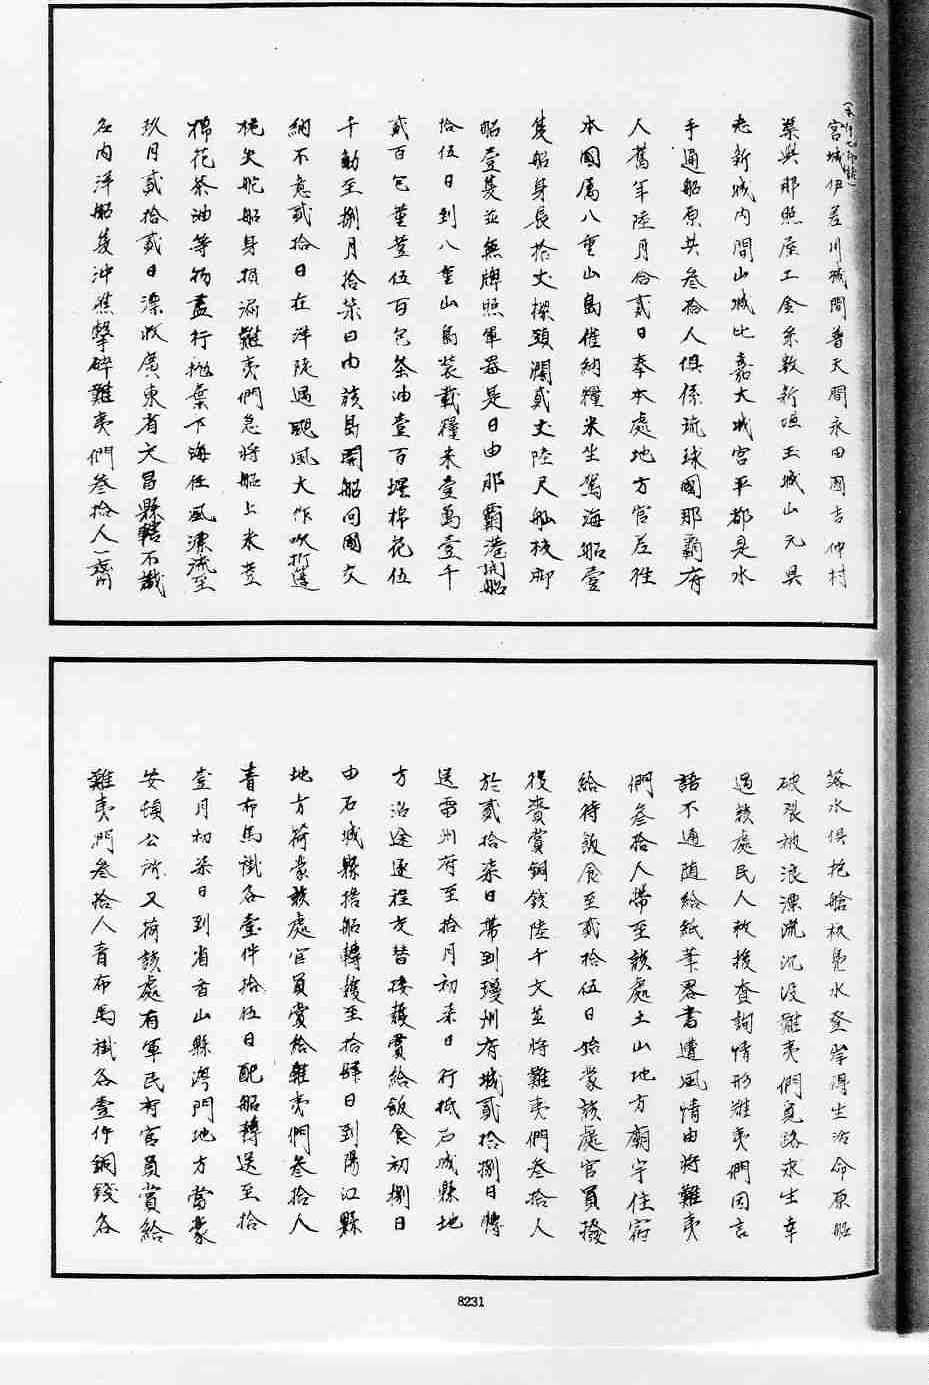 宮城伊差川城間普天間永田國吉仲村
渠與那照屋工金糸數新垣玉城山元具
志新城內間山城比嘉大城宮平都是水
手通船原共叁拾人俱係琉球國那霸府
人舊年陸月拾貳日奉本處地方官差往
本國屬八重山島催納糧米坐駕海船壹
隻船身長拾丈樑頭濶貳丈陸尺舢板脚
船壹隻並無牌照軍器是日由那霸港開船
拾伍日到八重山島裝載糧米壹萬壹千
貳百包薑荳伍百包茶油壹百埕棉花伍
千觔至捌月拾柒日內該島開船回國交
納不意貳拾日在洋陡遇颶風大作吹折蓬
桅失舵船身損漏難夷們急將船上米荳
棉花茶油等物盡行拋棄下海任風漂流至
玖月貳拾貳日漂收廣東省文昌縣轄不識
名內洋船隻沖礁擊碎難夷們叁拾人一齊
落水俱抱艙板鳧水登岸得生活命原船
破裂被浪漂流沉沒難夷們覓路求生幸
遇該處民人救援查詢情形難夷們因言
語不通隨給紙筆畧書遭風情由將難夷
們叁拾人帶至該處土山地方廟宇住宿
給待飯食至貳拾伍日始蒙該處官員撥
役賚賞銅錢陸千文並將難夷們叁拾人
於貳拾柒日帶到瓊州府城貳拾捌日轉
送雷州府至拾月初柒日行抵石城縣地
方沿途逐程交替接護賞給飯食初捌日
由石城縣換船轉護至拾肆日到陽江縣
地方荷蒙該處官員賞給難夷們叁拾人
青布馬褂各壹件拾伍日配船轉送至拾
壹月初柒日到省香山縣灣門地方當蒙
安頓公所又荷該處有軍民府官員賞給
難夷門叁拾人青布馬褂各壹件銅錢各
8231